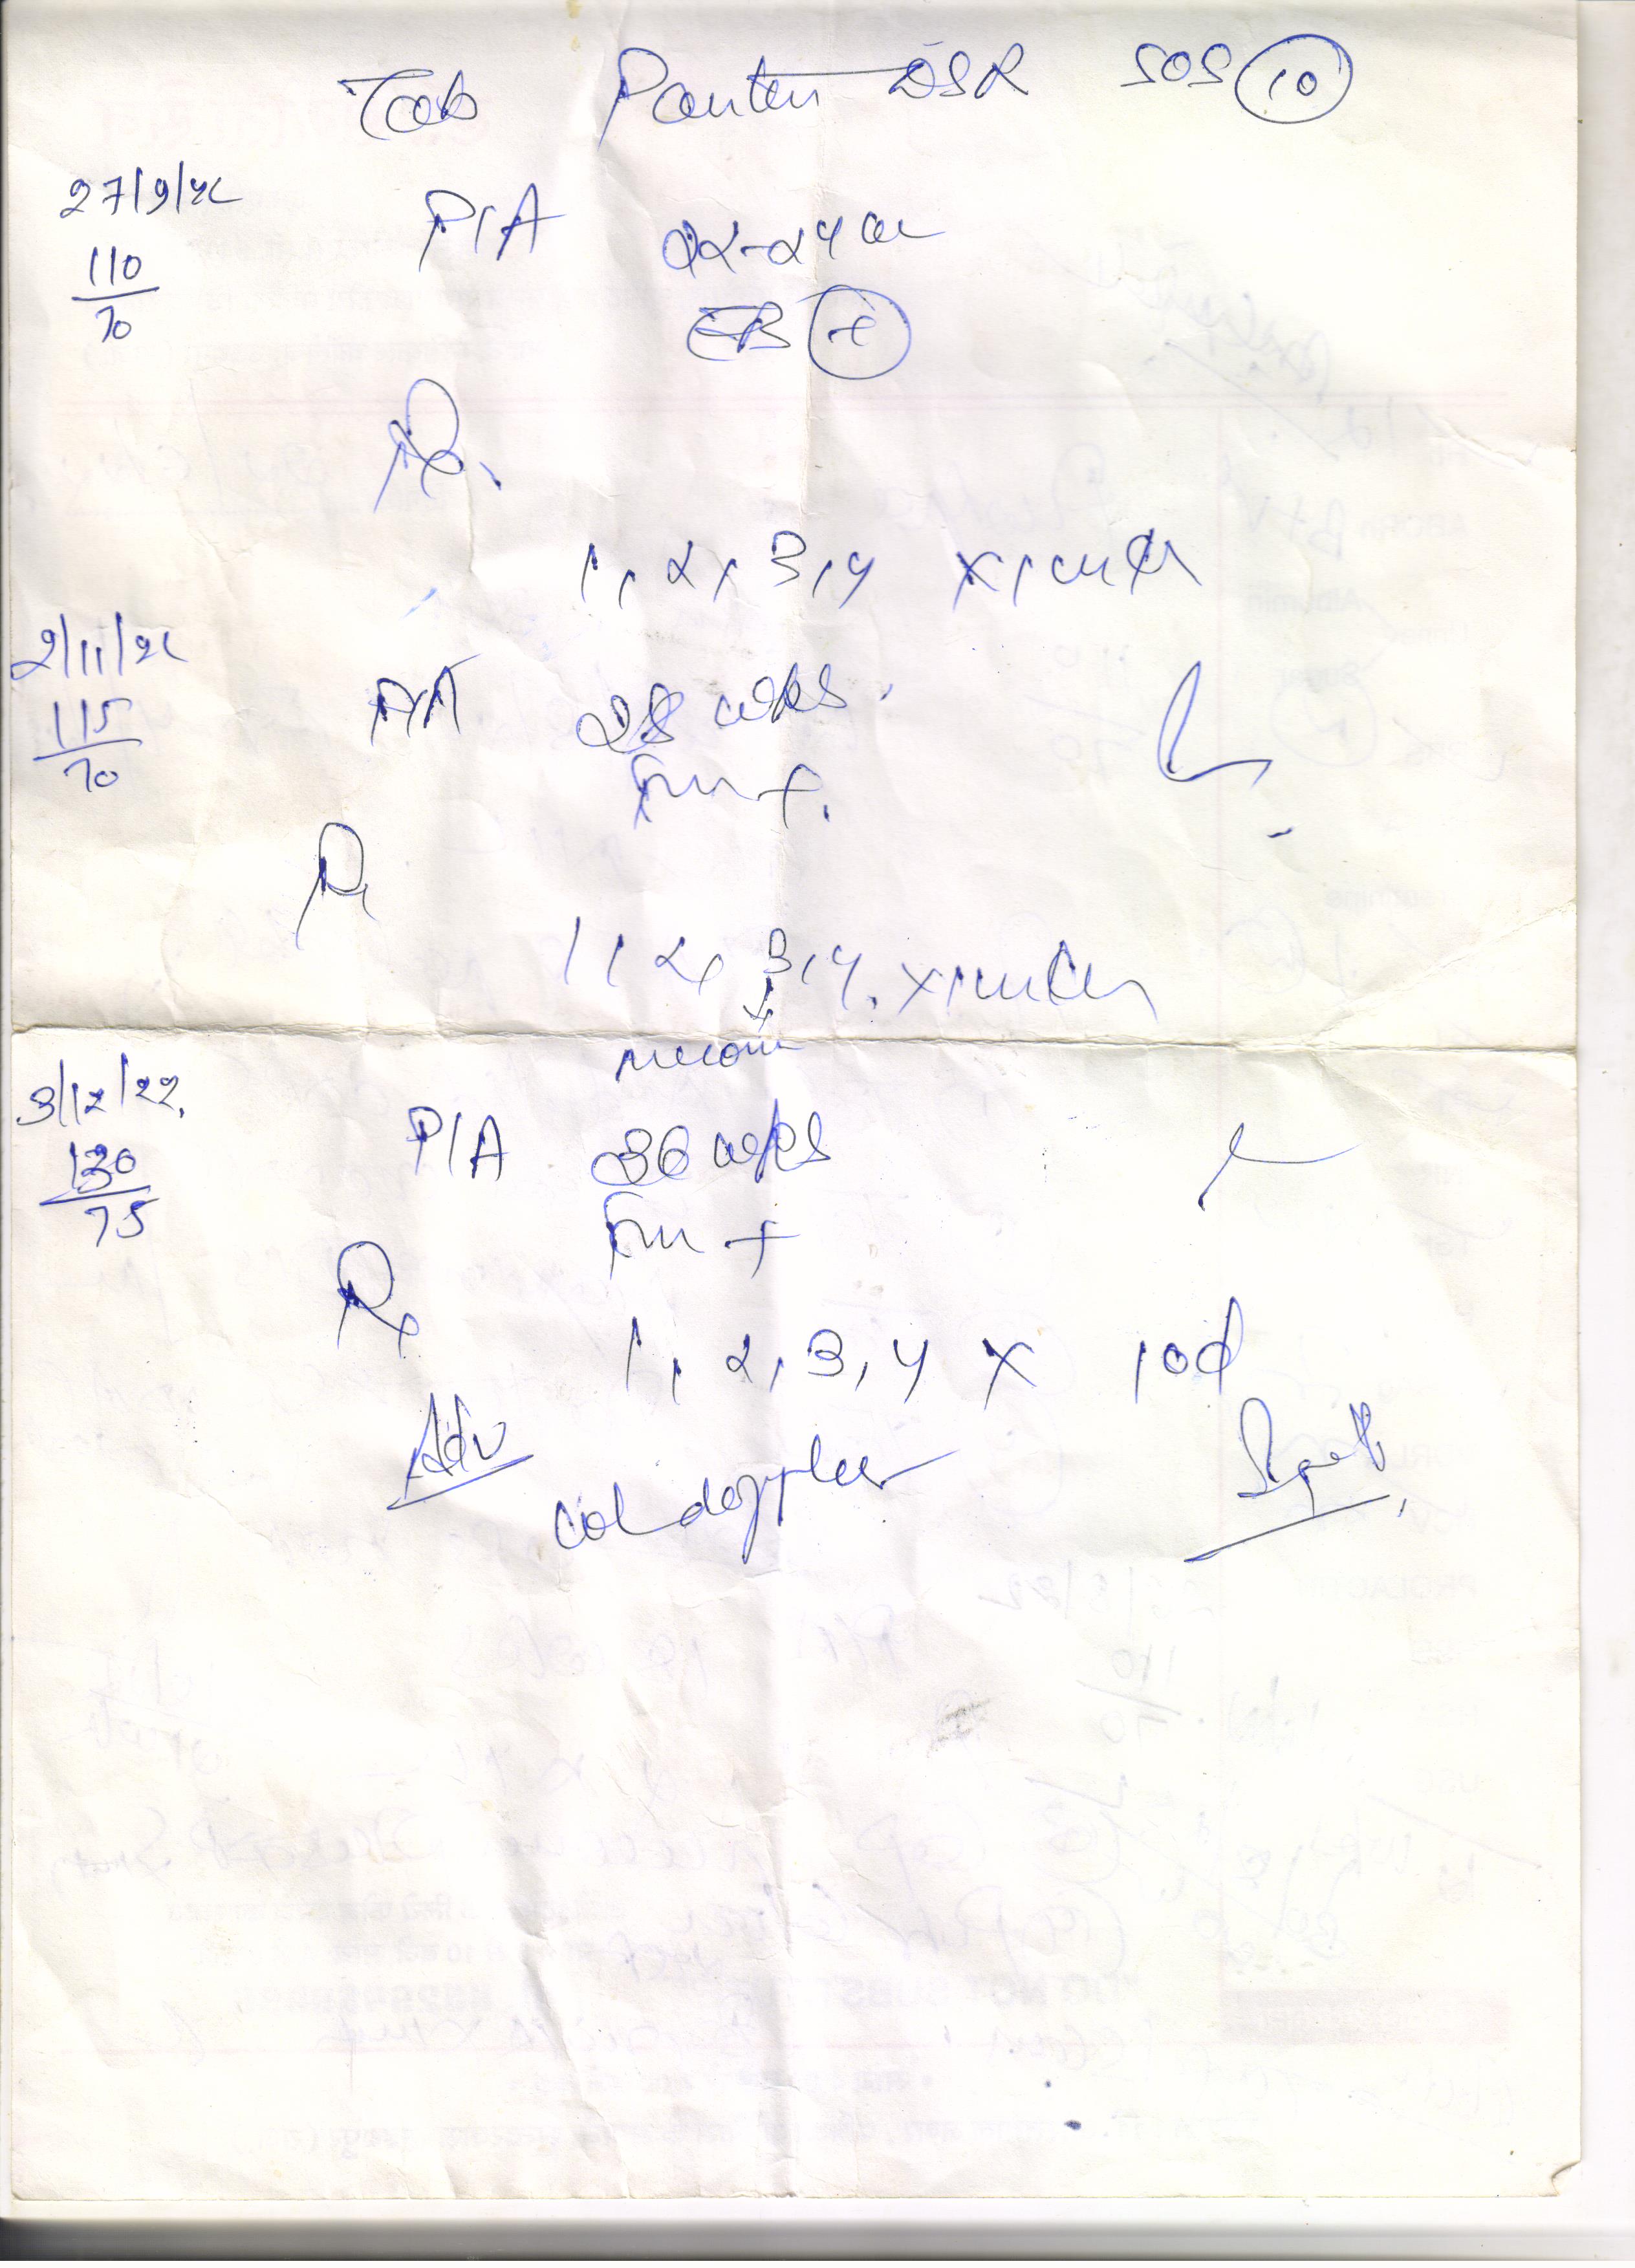 Tab Pantin DSR SOS 10
27/9/22
110
70
P/A 22-24 wk
EB +
Rx.
1, 2, 3, 4 x 1 mth
2/11/22
115
70
P/A 28 wks.
Fm +.
Rx
1, 2, 3, 4. x 1 mth
3/12/22.
130
75
P/A 36 wks
Fm +
Rx
1, 2, 3, 4 x 10d
Adv
col doppler